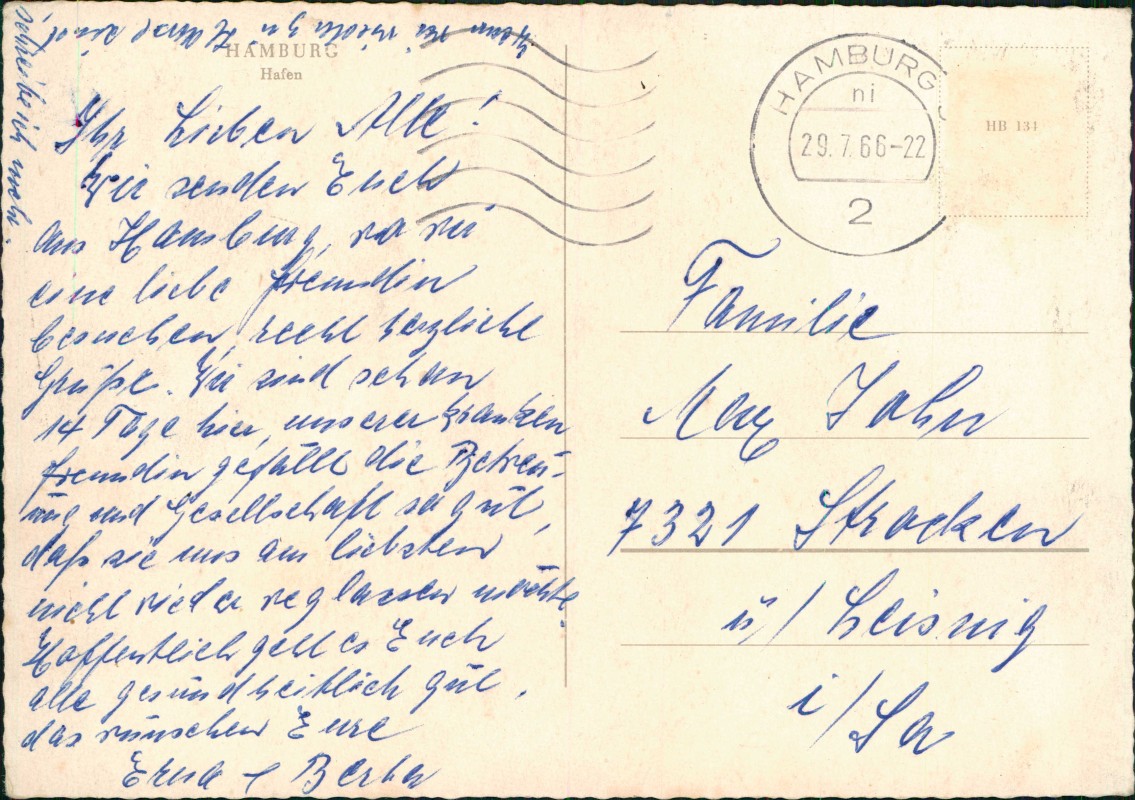 HAMBURG
Hafen
Ihr Lieben Alle!
Wir senden Euch
aus Hamburg, wo wir
eine liebe Freundin
besuchen, recht herzliche
Grüße. Wir sind schon
14 Tage hier, unserer kranken
Freundin gefällt die Betreu-
ung und Gesellschaft so gut,
daß sie uns am liebsten
nicht wieder weglassen möchte.
Hoffentlich geht es Euch
alle gesundheitlich gut,
das wünschen Eure
Erna + Berta
Wenn wir wieder zu Hause sind,
schreibe ich mehr.
HAMBURG
ni
29.7.66-22
2
HB 134
Familie
Max John
7321 Strocken
ü/ Leisnig
i/Sa